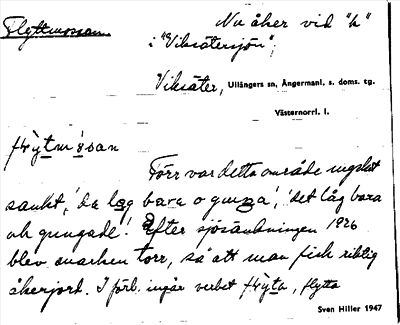 Flyttmossan
Nu åker vid "k"
i "Viksätersjön";
Viksäter, Ullångers sn, Ångermanl. s. doms. tg.
Västernorrl. l.
Förr var detta område mycket
sankt, 'da låg bara o gunga', 'det låg bara
och gungade'. Efter sjösänkningen 1926
blev marken torr, så att man fick riktig
åkerjord. I förb. ingår verbet flytta
Sven Hiller 1947